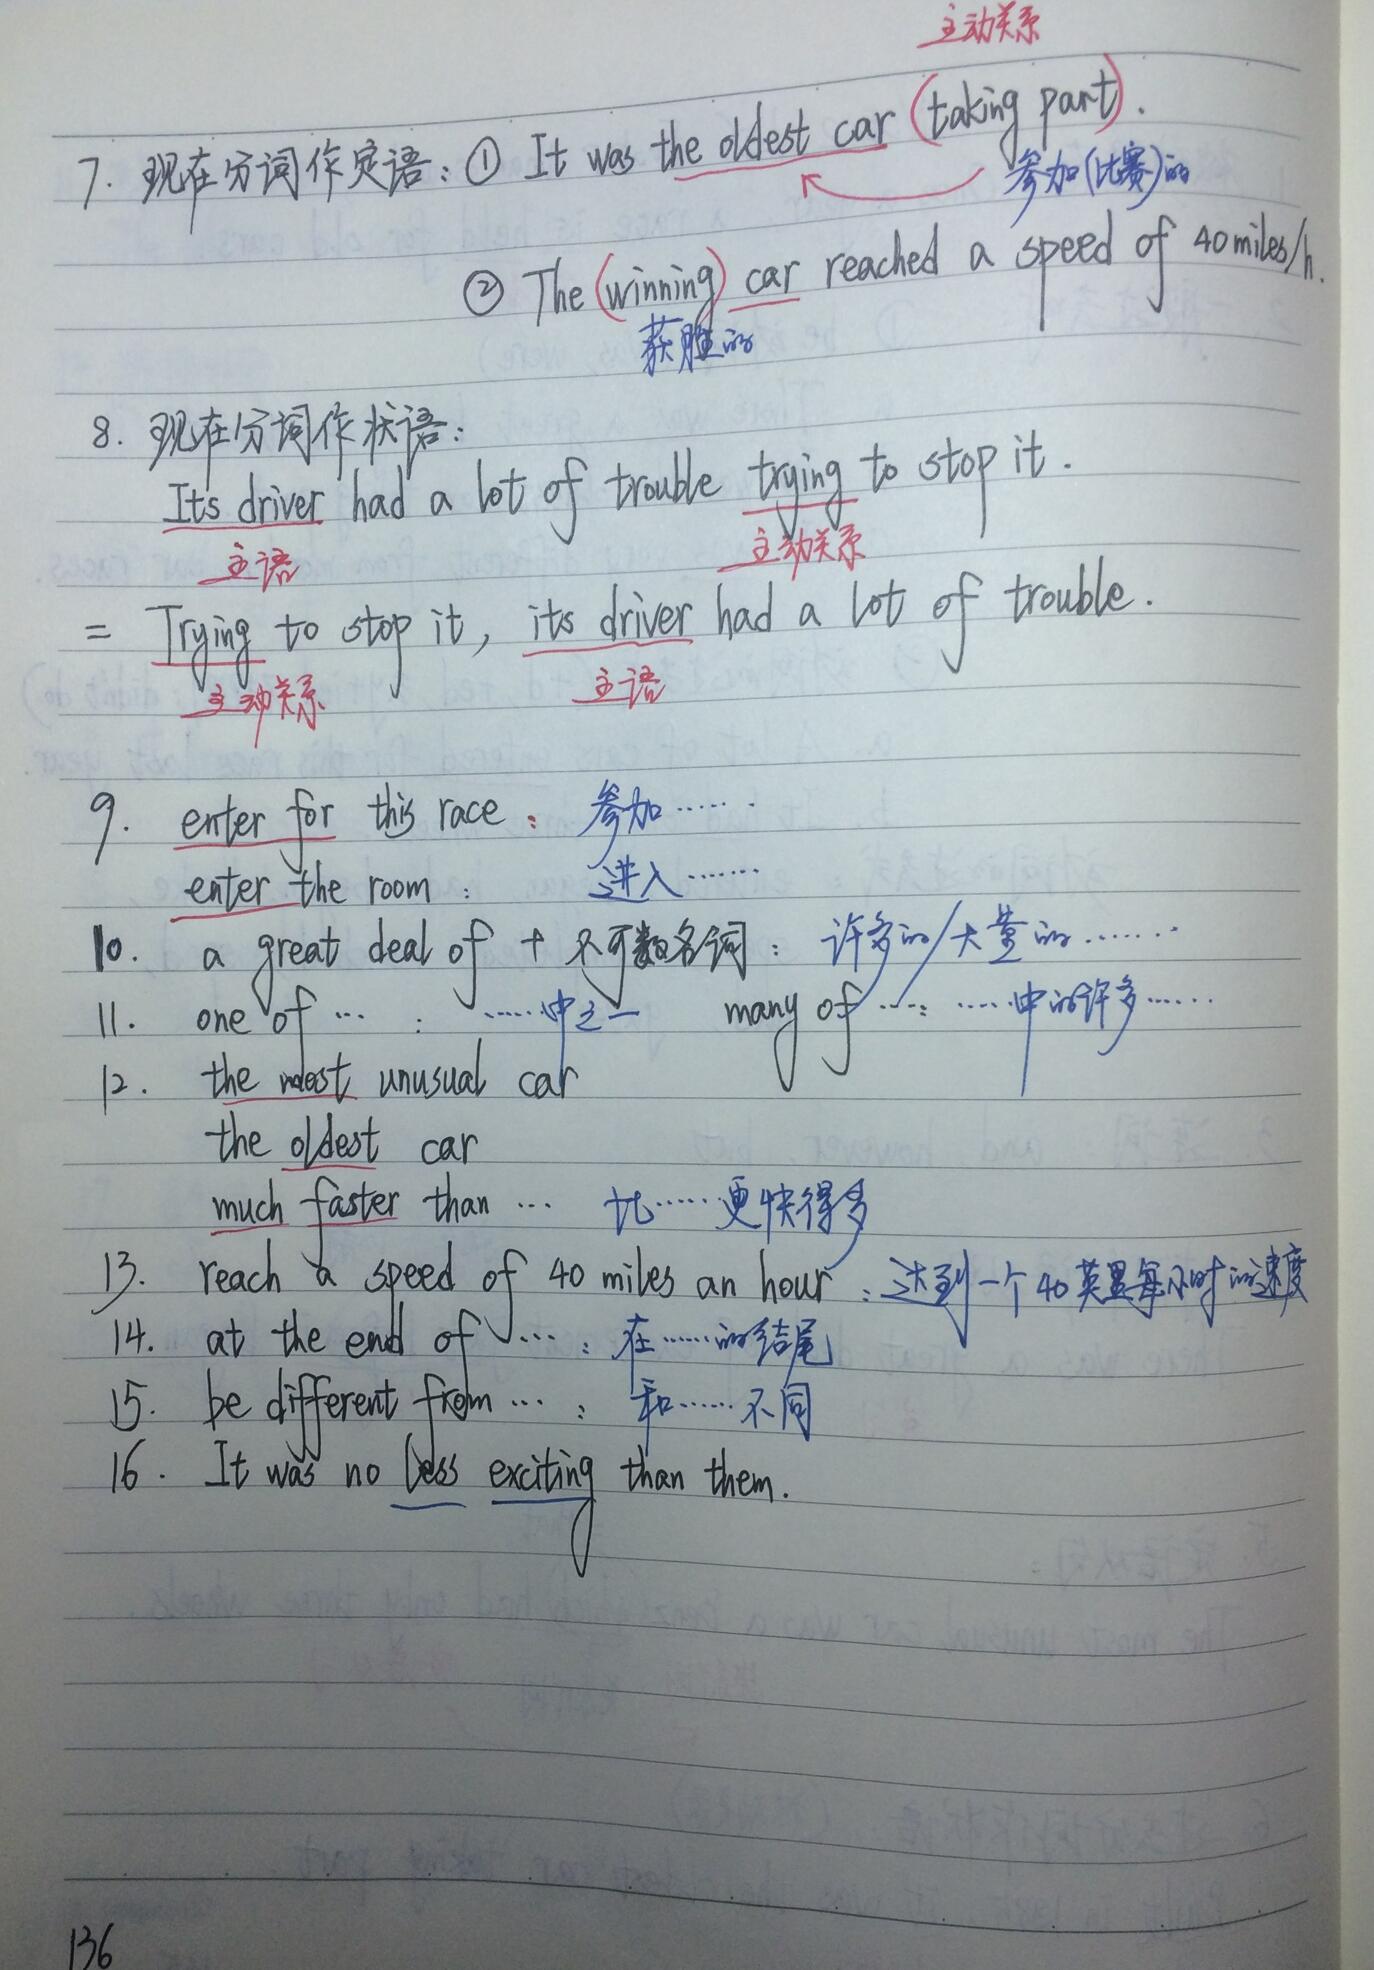 主动关系
7. 现在分词作定语：① It was the oldest car (taking part).
参加(比赛)的
② The (winning) car reached a speed of 40 miles/h.
获胜的
8. 现在分词作状语：
Its driver had a lot of trouble trying to stop it.
主语 主动关系
= Trying to stop it, its driver had a lot of trouble.
主动关系 主语
9. enter for this race: 参加……
enter the room: 进入……
10. a great deal of + 不可数名词：许多的/大量的……
11. one of …: ……中之一 many of …: ……中的许多……
12. the most unusual car
the oldest car
much faster than … 比……更快得多
13. reach a speed of 40 miles an hour: 达到一个40英里每小时的速度
14. at the end of …: 在……的结尾
15. be different from …: 和……不同
16. It was no less exciting than them.
136